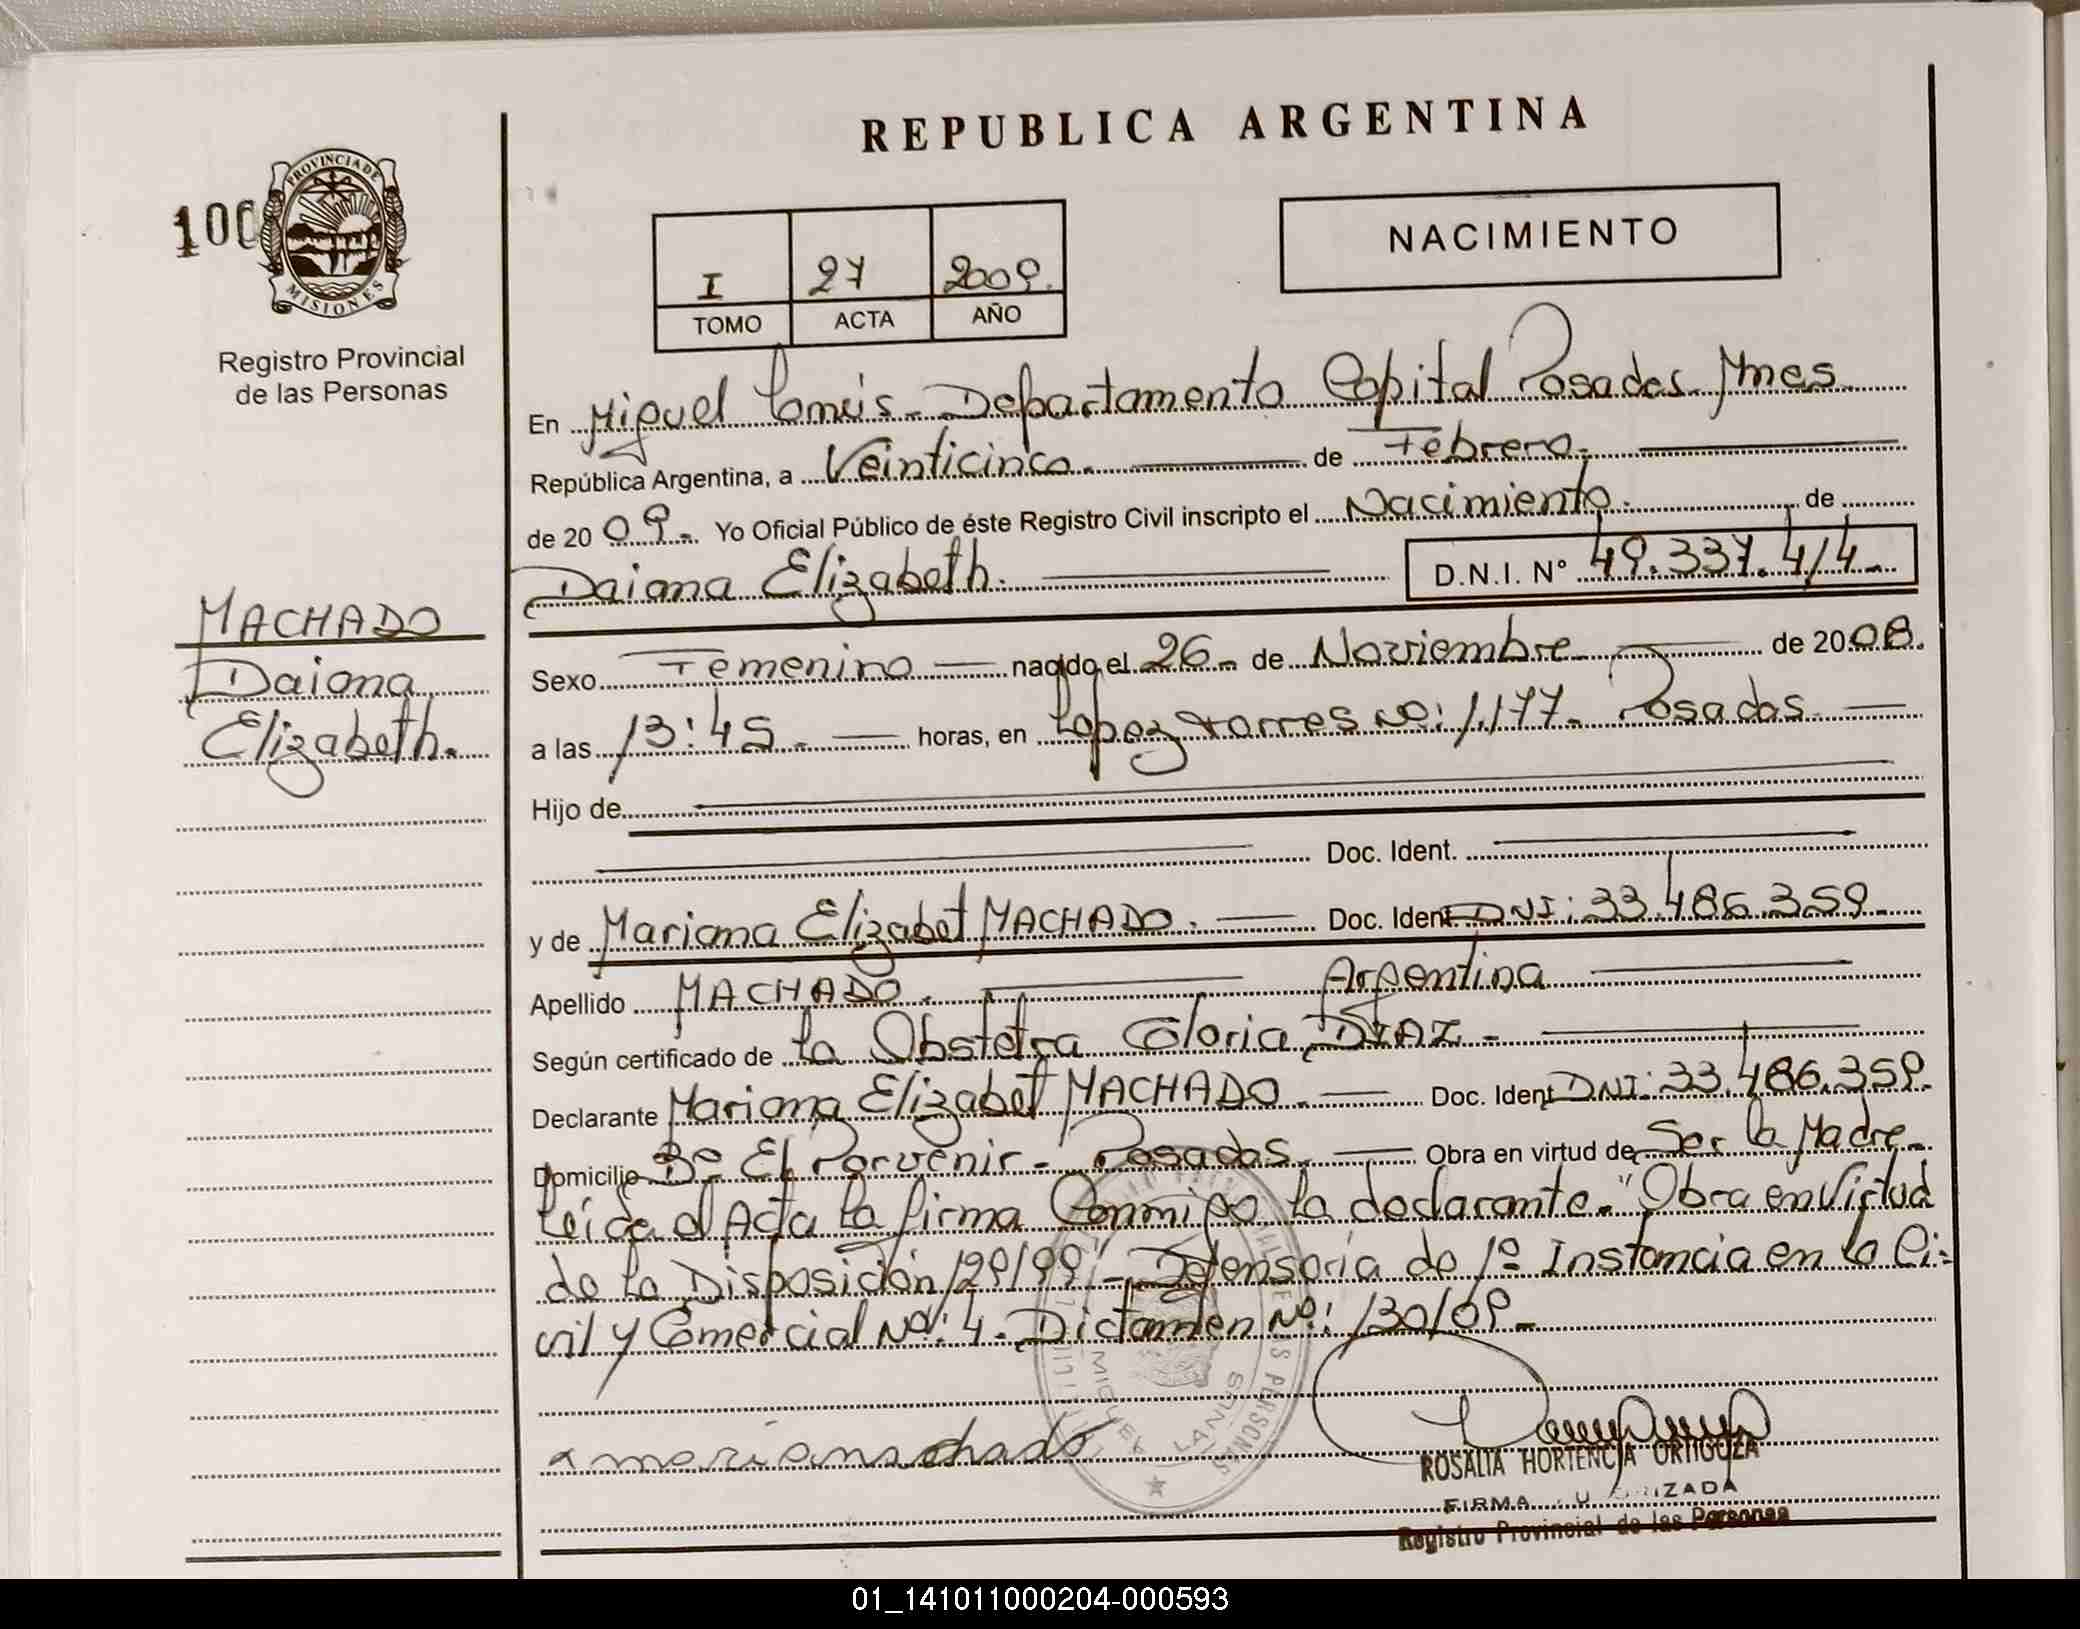 REPUBLICA ARGENTINA
100
PROVINCIA DE
MISIONES
Registro Provincial
de las Personas
NACIMIENTO
I 27 2009.
TOMO ACTA AÑO
En Miguel Lanús. Departamento Capital Posadas Mnes
República Argentina, a Veinticinco. de Febrero.
de 20 09. Yo Oficial Público de éste Registro Civil inscripto el Nacimiento. de
Daiana Elizabeth. D.N.I. N° 49.337.414.
MACHADO
Daiana
Elizabeth.
Sexo Femenino nacido el 26 de Noviembre de 2008.
a las 13:45. horas, en Lopez Torres No: 1.177. Posadas
Hijo de
Doc. Ident.
y de Mariana Elizabet MACHADO. Doc. Ident. DNI: 33.486.359.
Apellido MACHADO. Argentina
Según certificado de La Obstetra Gloria DIAZ.
Declarante Mariana Elizabet MACHADO. Doc. Ident DNI: 33.486.359.
Domicilio Bº El Porvenir - Posadas. Obra en virtud de Ser la Madre.
Leída el Acta la firma Conmigo la declarante. "Obra en Virtud
de la Disposición 129/99" - Defensoría de 1º Instancia en lo Ci=
vil y Comercial Nº: 4. Dictamen Nº: 130/09.
MIGUEL LANUS
ROSALIA HORTENCIA ORTIGOZA
FIRMA
Registro Provincial de las Personas
01_141011000204-000593